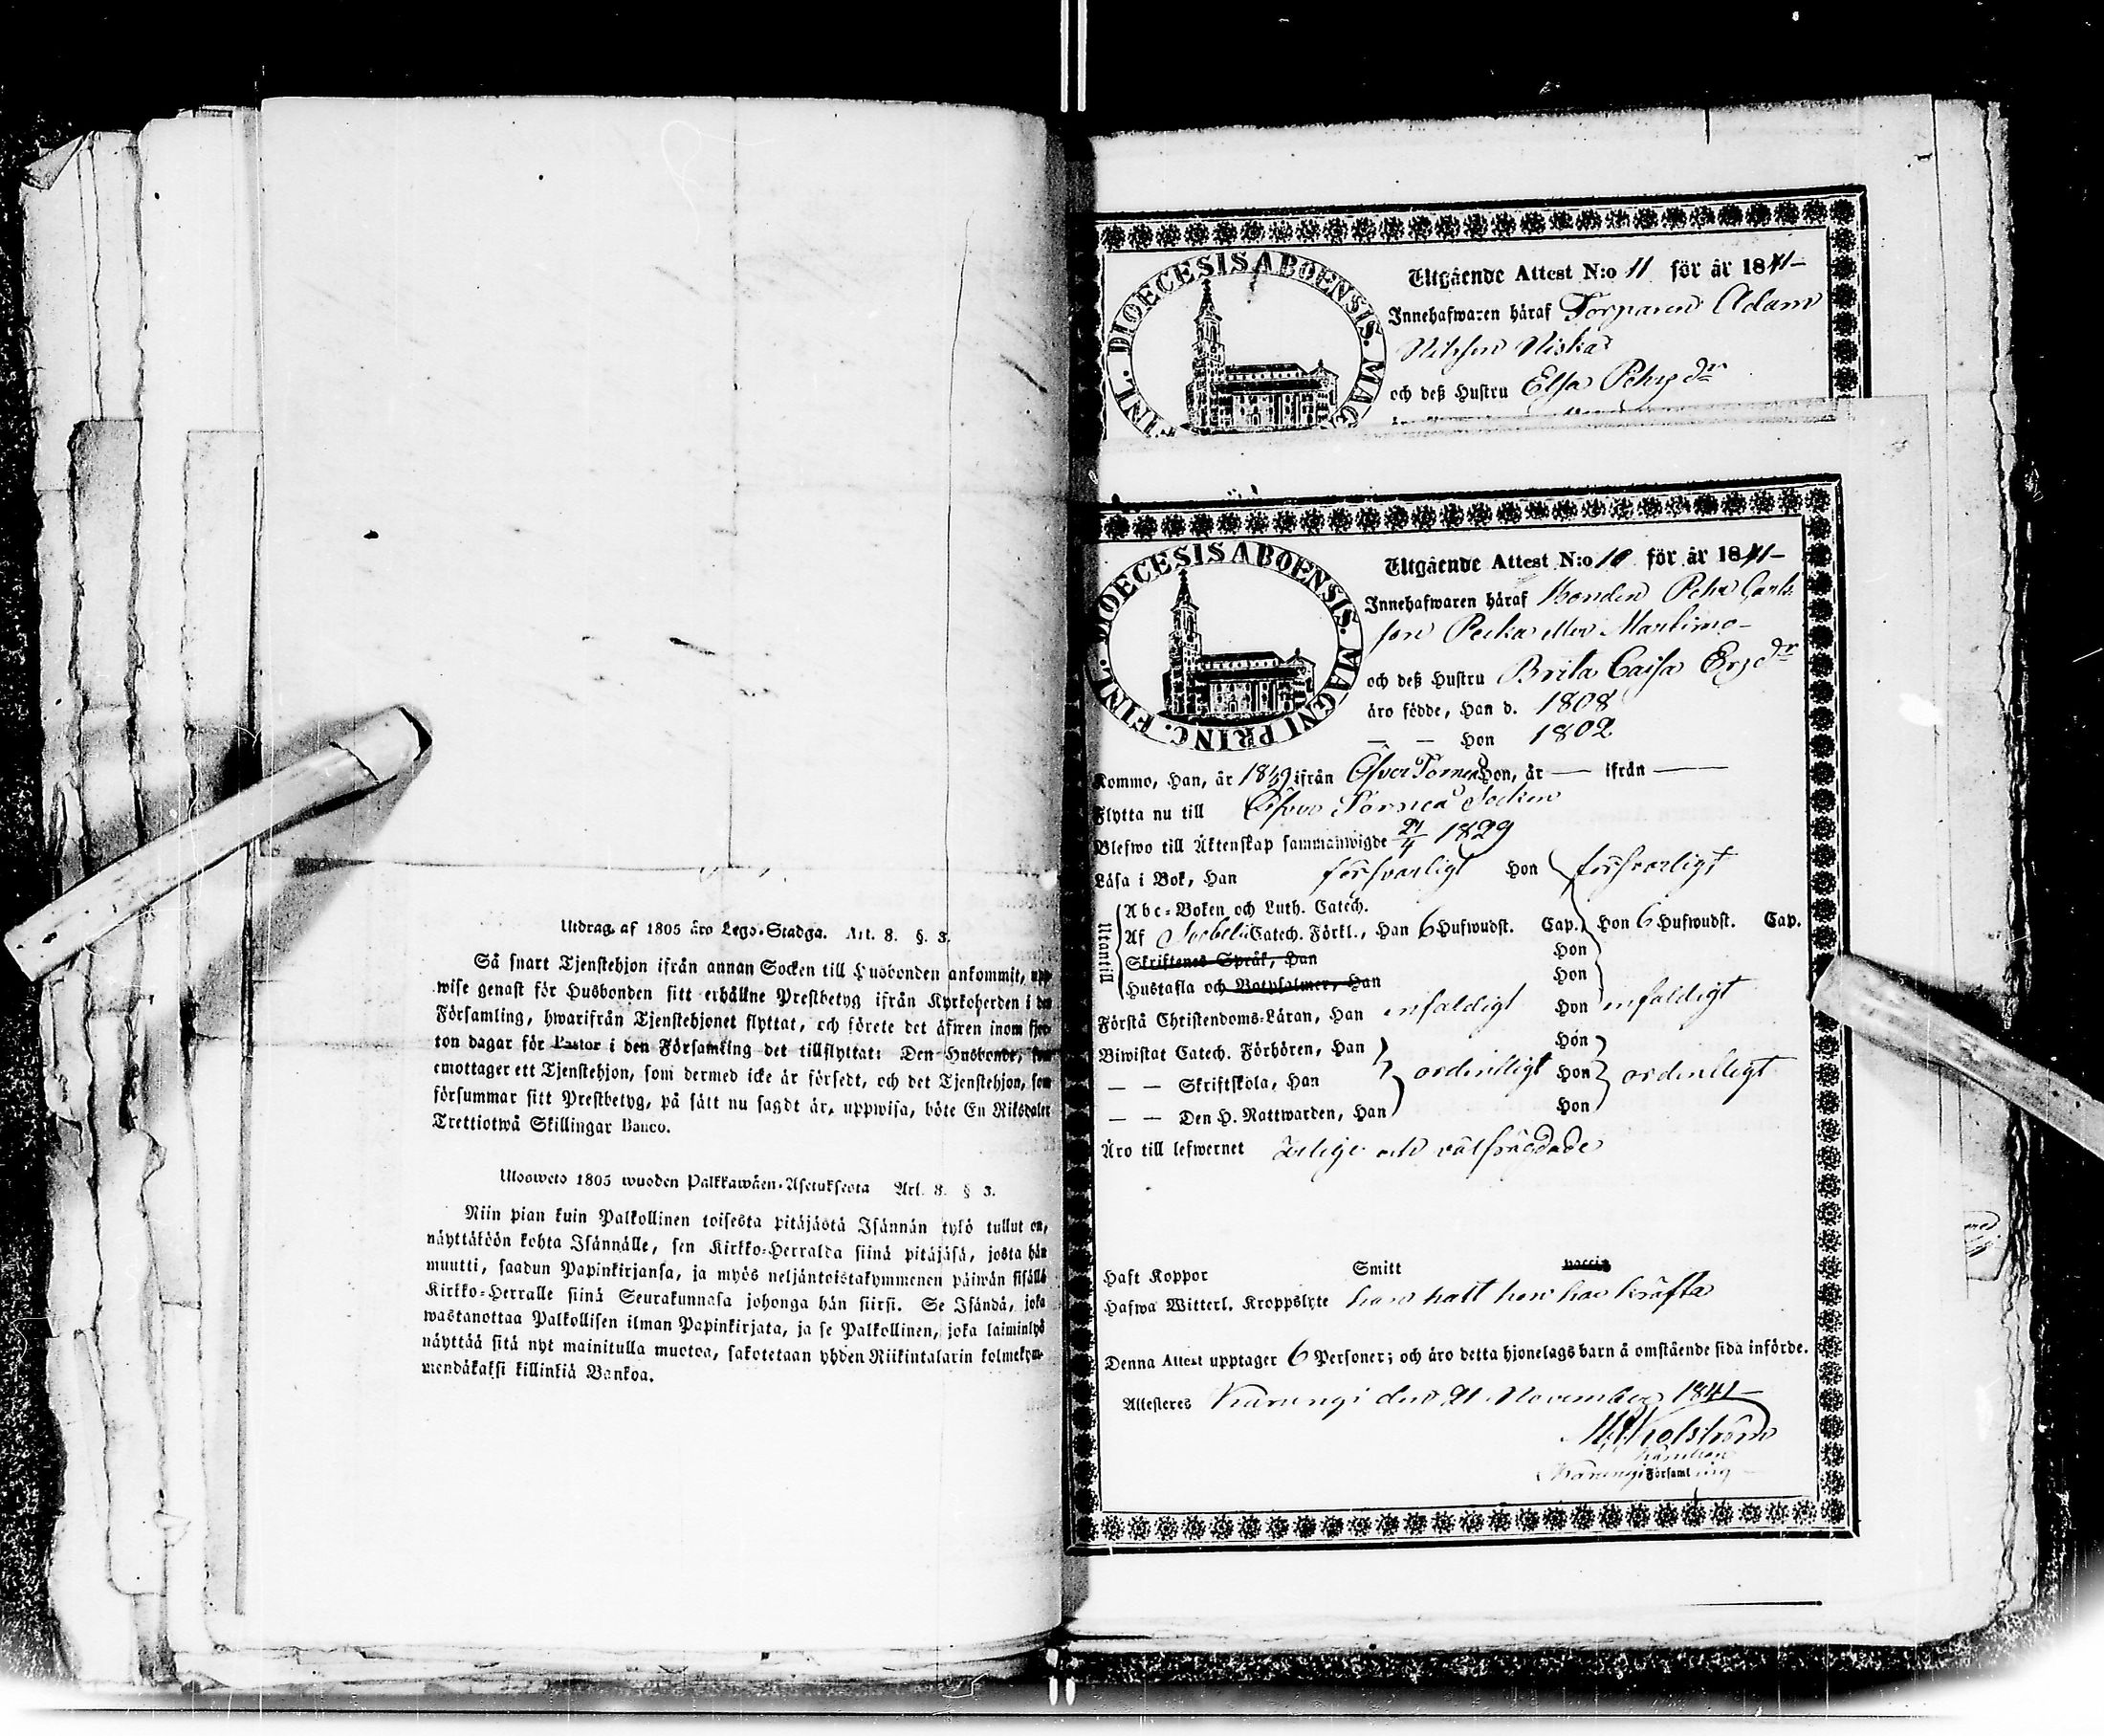 Utdrag af 1805 åro Lego-Stadga. Art. 8. §. 3.
Så snart Tjenstehjon ifrån annan Socken till Husbonden ankommit, upp-
wise genast för Husbonden sitt erhållne Prestbetyg ifrån Kyrkoherden i den
Församling, hwarifrån Tjenstehjonet flyttat, och förete det äfwen inom fjor-
ton dagar för Pastor i den Församling det tillflyttat: Den Husbonde, som
emottager ett Tjenstehjon, som dermed icke är försedt, och det Tjenstehjon, som
försummar sitt Prestbetyg, på sätt nu sagdt är, uppwisa, böte En Riksdaler
Trettiotwå Skillingar Banco.
Ulosweto 1805 wuoden Palkkawäen-Asetuksesta Art. 8. § 3.
Niin pian kuin Palkollinen toisesta pitäjästä Isännän tykö tullut on,
näyttäköön kohta Isännälle, sen Kirkko-Herralda siinä pitäjäsä, josta hän
muutti, saadun Papinkirjansa, ja myös neljäntoistakymmenen päiwän sisällä
Kirkko-Herralle siinä Seurakunnasa johonga hän siirsi. Se Isändä, joka
wastanottaa Palkollisen ilman Papinkirjata, ja se Palkollinen, joka laiminlyö
näyttää sitä nyt mainitulla muotoa, sakotetaan yhden Riikintalarin kolmekym-
mendäkaksi killinkiä Bankoa.
DIOECESIS ABOENSIS. MAG
FINL.
Utgående Attest N:o 11 för år 1841-
Innehafwaren häraf Torparen Adam
Nilsson Niska
och deß Hustru Elsa Pehrs dr
DIOECESIS ABOENSIS. MAGNI PRINC. FINL.
Utgående Attest N:o 10 för år 1841-
Innehafwaren häraf Bonden Pehr Carls
son Pecka eller Martimo-
och deß Hustru Brita Caisa Ersdr
äro födde, Han d. 1808
— — Hon 1802
Kommo, Han, år 1849 ifrån Öfver Torneå Hon, år — ifrån —
Flytta nu till Öfver Torneå Socken
Blefwo till Äktenskap sammanwigde 21/4 1829
Läsa i Bok, Han försvarligt Hon försvarligt
Utantill
Abc-Boken och Luth. Catech.
Af Svebelii Catech. Förkl., Han 6 Hufwudst. Cap. Hon 6 Hufwudst. Cap.
Skriftenes Språk, Han Hon
Hustafla och Botpsalmer, Han Hon
Förstå Christendoms-Läran, Han enfaldigt Hon enfaldigt
Biwistat Catech. Förhören, Han Hon
— — Skriftskola, Han ordentligt Hon ordentligt
— — Den H. Nattwarden, Han Hon
Äro till lefwernet ärlige och välfrägdade
Haft Koppor Smitt vaccin
Hafwa Witterl. Kroppslyte han halt hon har kräfta
Denna Attest upptager 6 Personer; och äro detta hjonelags barn å omstående sida införde.
Attesteres Karungi den 21 November 1841-
Karungi Församling